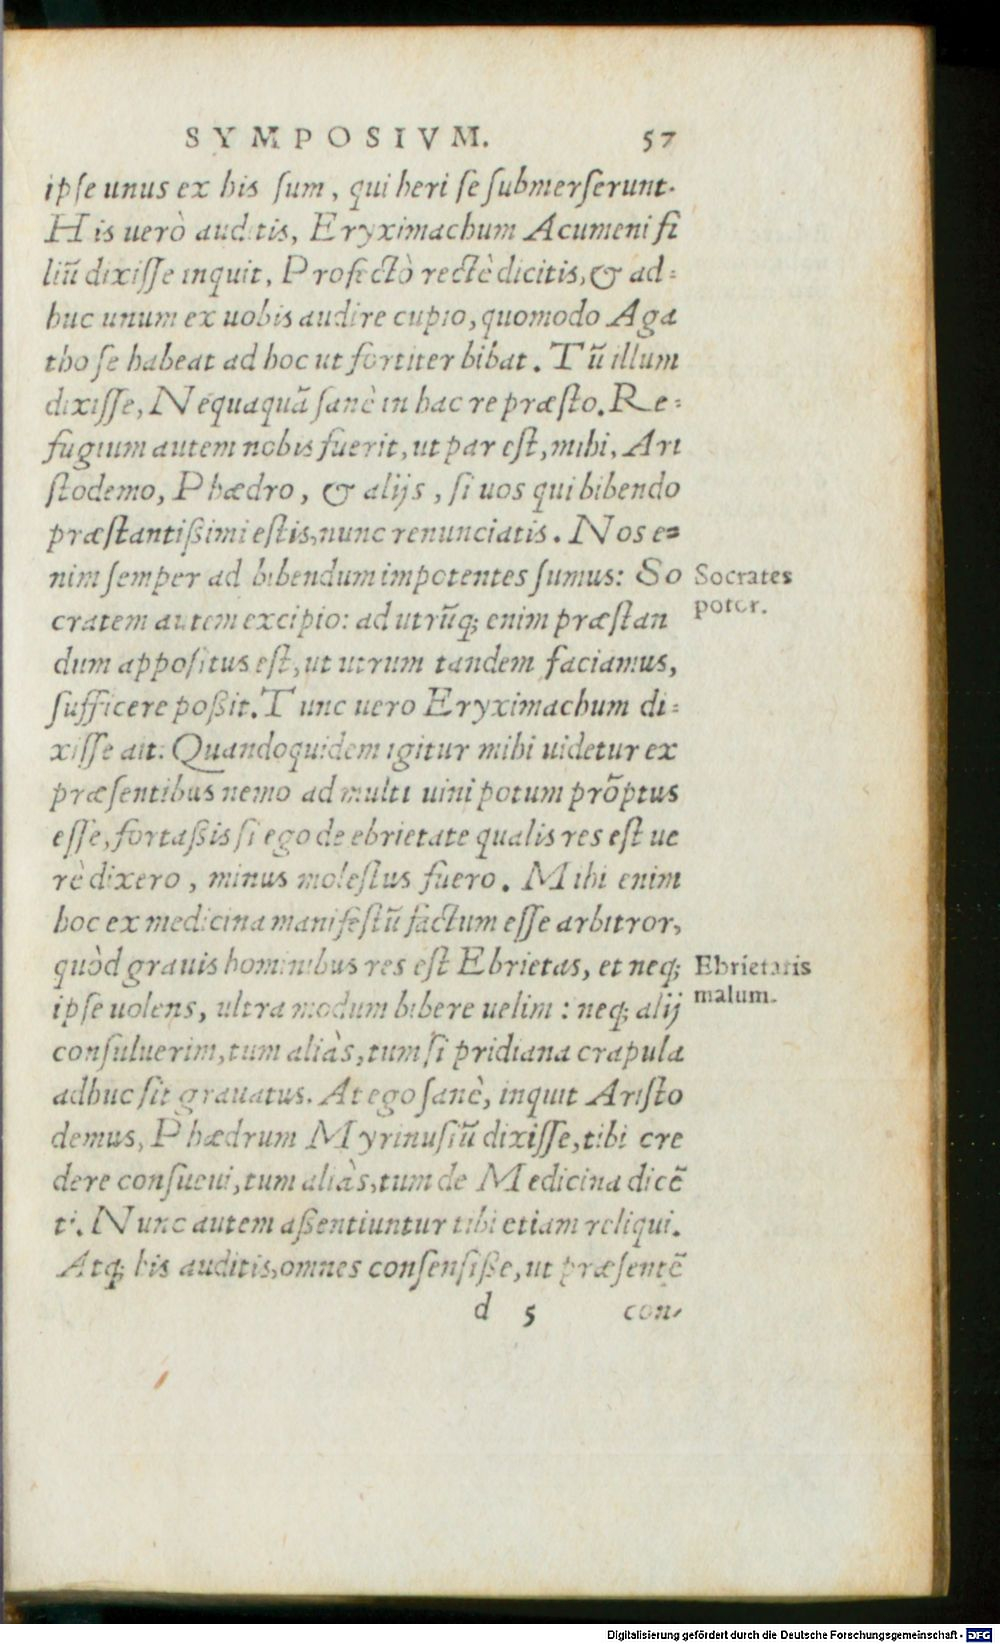 SYMPOSIVM. 57
ipſe unus ex his ſum, qui heri ſe ſubmerſerunt.
His uerò auditis, Eryximachum Acumeni fi
liũ dixiſſe inquit, Profectò rectè dicitis, & ad=
huc unum ex uobis audire cupio, quomodo Aga
tho ſe habeat ad hoc ut fortiter bibat. Tũ illum
dixiſſe, Nequaquã ſanè in hac re præſto. Re=
fugium autem nobis fuerit, ut par eſt, mihi, Ari
ſtodemo, Phædro, & alijs, ſi uos qui bibendo
præſtantißimi eſtis, nunc renunciatis. Nos e=
nim ſemper ad bibendum impotentes ſumus: So
Socrates
potor.
cratem autem excipio: ad utrũq; enim præſtan
dum appoſitus eſt, ut utrum tandem faciamus,
ſufficere poßit. Tunc uero Eryximachum di=
xiſſe ait. Quandoquidem igitur mihi uidetur ex
præſentibus nemo ad multi uini potum prõptus
eſſe, fortaßis ſi ego de ebrietate qualis res eſt ue
rè dixero, minus moleſtus fuero. Mihi enim
hoc ex medicina manifeſtũ factum eſſe arbitror,
quòd grauis hominibus res eſt Ebrietas, et neq;
Ebrietatis
malum.
ipſe uolens, ultra modum bibere uelim: neq; alij
conſuluerim, tum aliàs, tum ſi pridiana crapula
adhuc ſit grauatus. At ego ſanè, inquit Ariſto
demus, Phædrum Myrinuſiũ dixiſſe, tibi cre
dere conſueui, tum aliàs, tum de Medicina dicẽ
ti. Nunc autem aßentiuntur tibi etiam reliqui.
Atq; his auditis, omnes conſenſiße, ut præſentẽ
d 5 con-
Digitalisierung gefördert durch die Deutsche Forschungsgemeinschaft - DFG